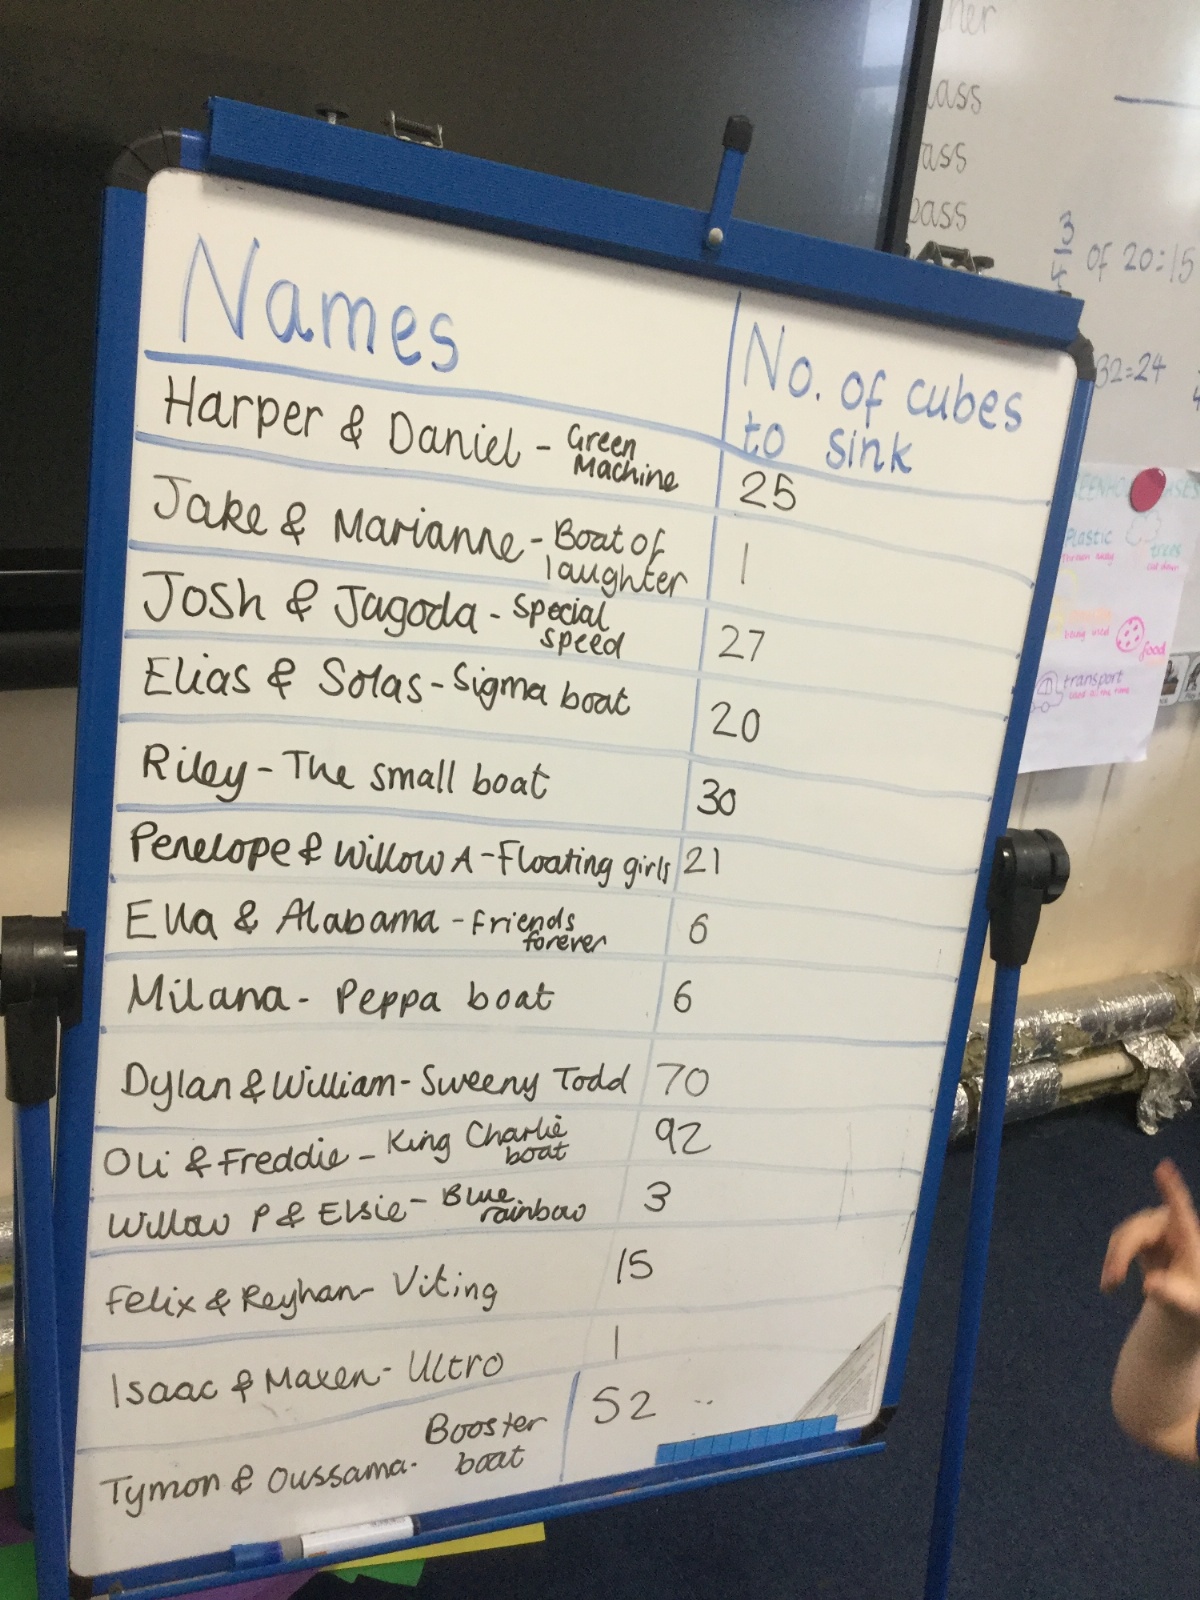 Names
No. of cubes
to sink
Harper & Daniel - Green
Machine
25
Jake & Marianne - Boat of
laughter
1
Josh & Jagoda - Special
speed
27
Elias & Solas - Sigma boat
20
Riley - The small boat
30
Penelope & Willow A - Floating girls
21
Ella & Alabama - Friends
forever
6
Milana - Peppa boat
6
Dylan & William - Sweeny Todd
70
Oli & Freddie - King Charlie
boat
92
Willow P & Elsie - Blue
rainbow
3
Felix & Reyhan - Viting
15
Isaac & Maxen - Ultro
1
Booster
boat
Tymon & Oussama -
52
ass
ass
pass
3
4
of 20 = 15
32 = 24
Plastic
trees
being used
food
transport